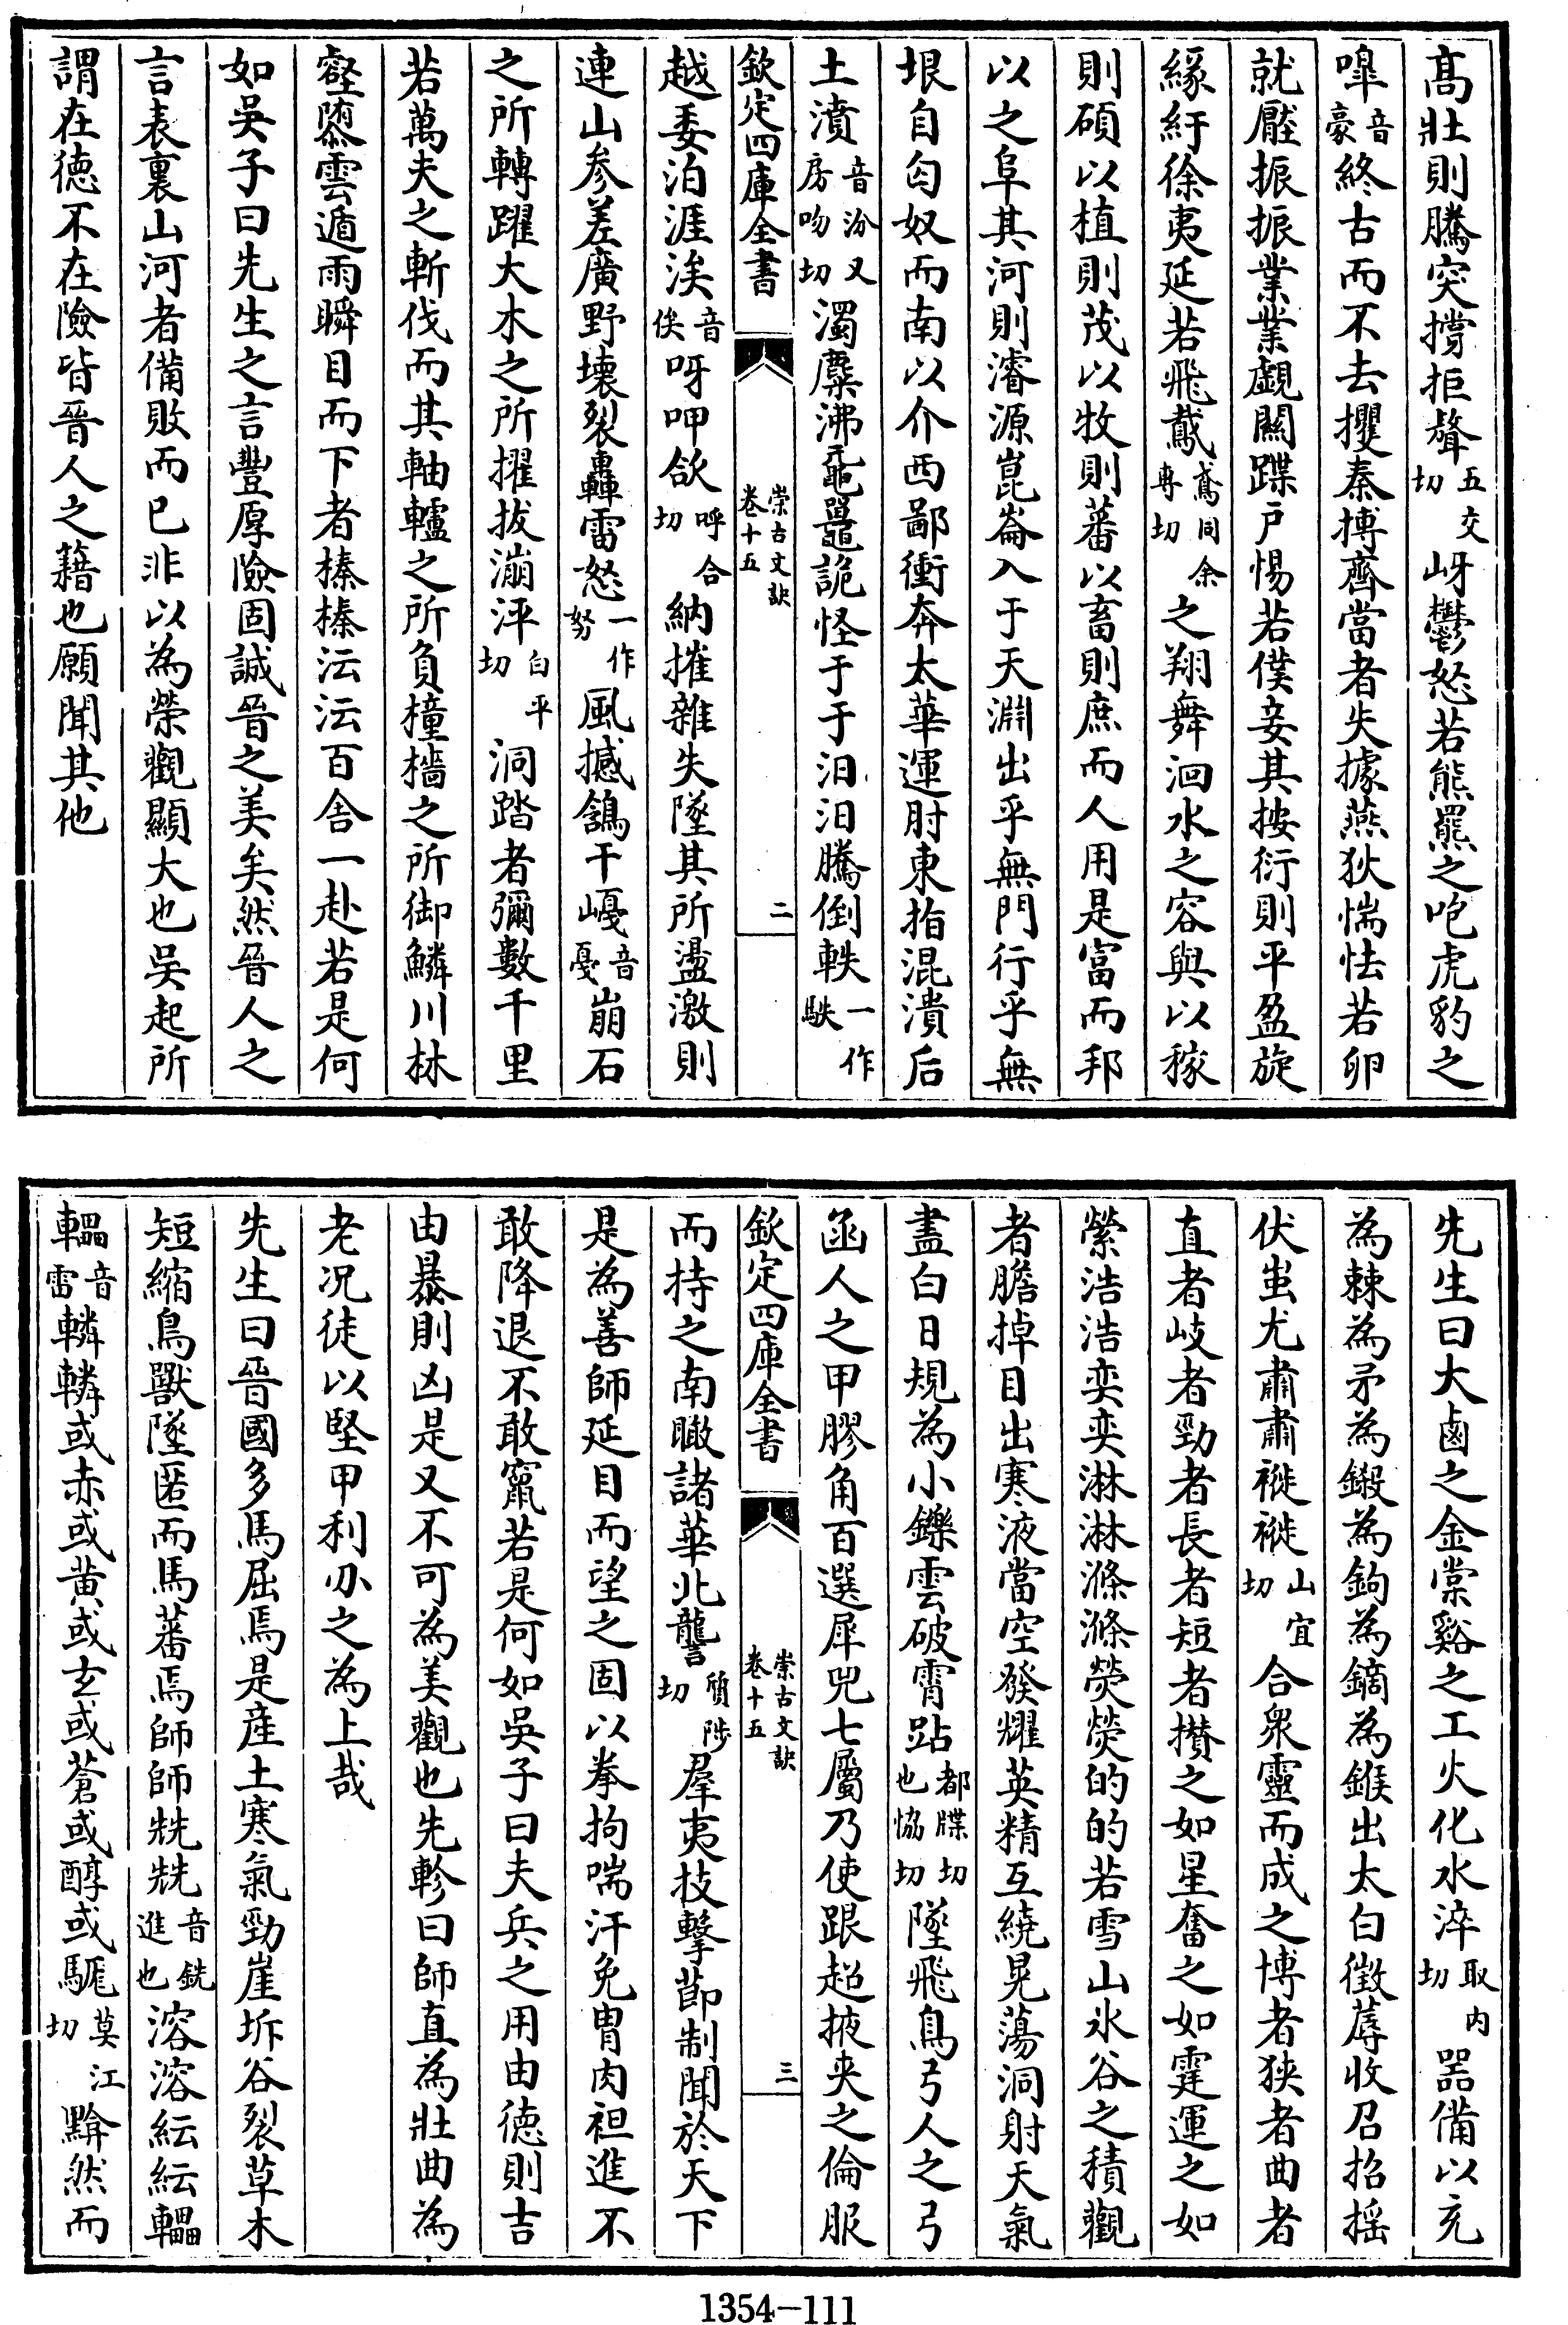 高壯則騰突撐拒聱五交切岈鬱怒若熊羆之咆虎豹之
嘷音豪終古而不去攫秦搏齊當者失據燕狄惴怯若卵
就壓振振業業覷關蹀戶惕若僕妾其按衍則平盈旋
緣紆徐夷延若飛鳶鳶同余専切之翔舞洄水之容與以稼
則碩以植則茂以牧則蕃以畜則庶而人用是富而邦
以之阜其河則濬源崑崙入于天淵出乎無門行乎無
垠自匈奴而南以介西鄙衝奔太華運肘東指混潰后
土濆音汾又房吻切濁糜沸黿鼉詭怪于于汨汨騰倒軼一作駃
欽定四庫全書
崇古文訣
卷十五
二
越委泊涯涘音俟呀呷欱呼合切納摧雜失墜其所盪激則
連山參差廣野壞裂轟雷怒一作努風撼鷂干嵑音戞崩石
之所轉躍大木之所擢拔漰泙白平切洞踏者彌數千里
若萬夫之斬伐而其軸轤之所負橦檣之所御鱗川林
壑隳雲遁雨瞬目而下者榛榛沄沄百舍一赴若是何
如吳子曰先生之言豐厚險固誠晉之美矣然晉人之
言表裏山河者備敗而已非以為榮觀顯大也吳起所
謂在德不在險皆晉人之籍也願聞其他
先生曰大鹵之金棠谿之工火化水淬取内切器備以充
為棘為矛為鎩為鉤為鏑為鍭出太白徵蓐收召招揺
伏蚩尤肅肅褷褷山宜切合衆靈而成之博者狹者曲者
直者岐者勁者長者短者攅之如星奮之如霆運之如
縈浩浩奕奕淋淋滌滌熒熒的的若雪山氷谷之積觀
者膽掉目出寒液當空發耀英精互繞晃蕩洞射天氣
盡白日規為小鑠雲破霄跕都牒切也恊切墜飛鳥弓人之弓
函人之甲膠角百選犀兕七屬乃使跟超掖夾之倫服
欽定四庫全書
崇古文訣
卷十五
三
而持之南瞰諸華北讋質陟切羣夷技擊節制聞於天下
是為善師延目而望之固以拳拘喘汗免胄肉袒進不
敢降退不敢竄若是何如吳子曰夫兵之用由德則吉
由暴則凶是又不可為美觀也先軫曰師直為壯曲為
老况徒以堅甲利刃之為上哉
先生曰晉國多馬屈焉是産土寒氣勁崖坼谷裂草木
短縮鳥獸墜匿而馬蕃焉師師兟兟音銑進也溶溶紜紜轠
轠音雷轔轔或赤或黄或玄或蒼或醇或駹莫江切黭然而
1354-111